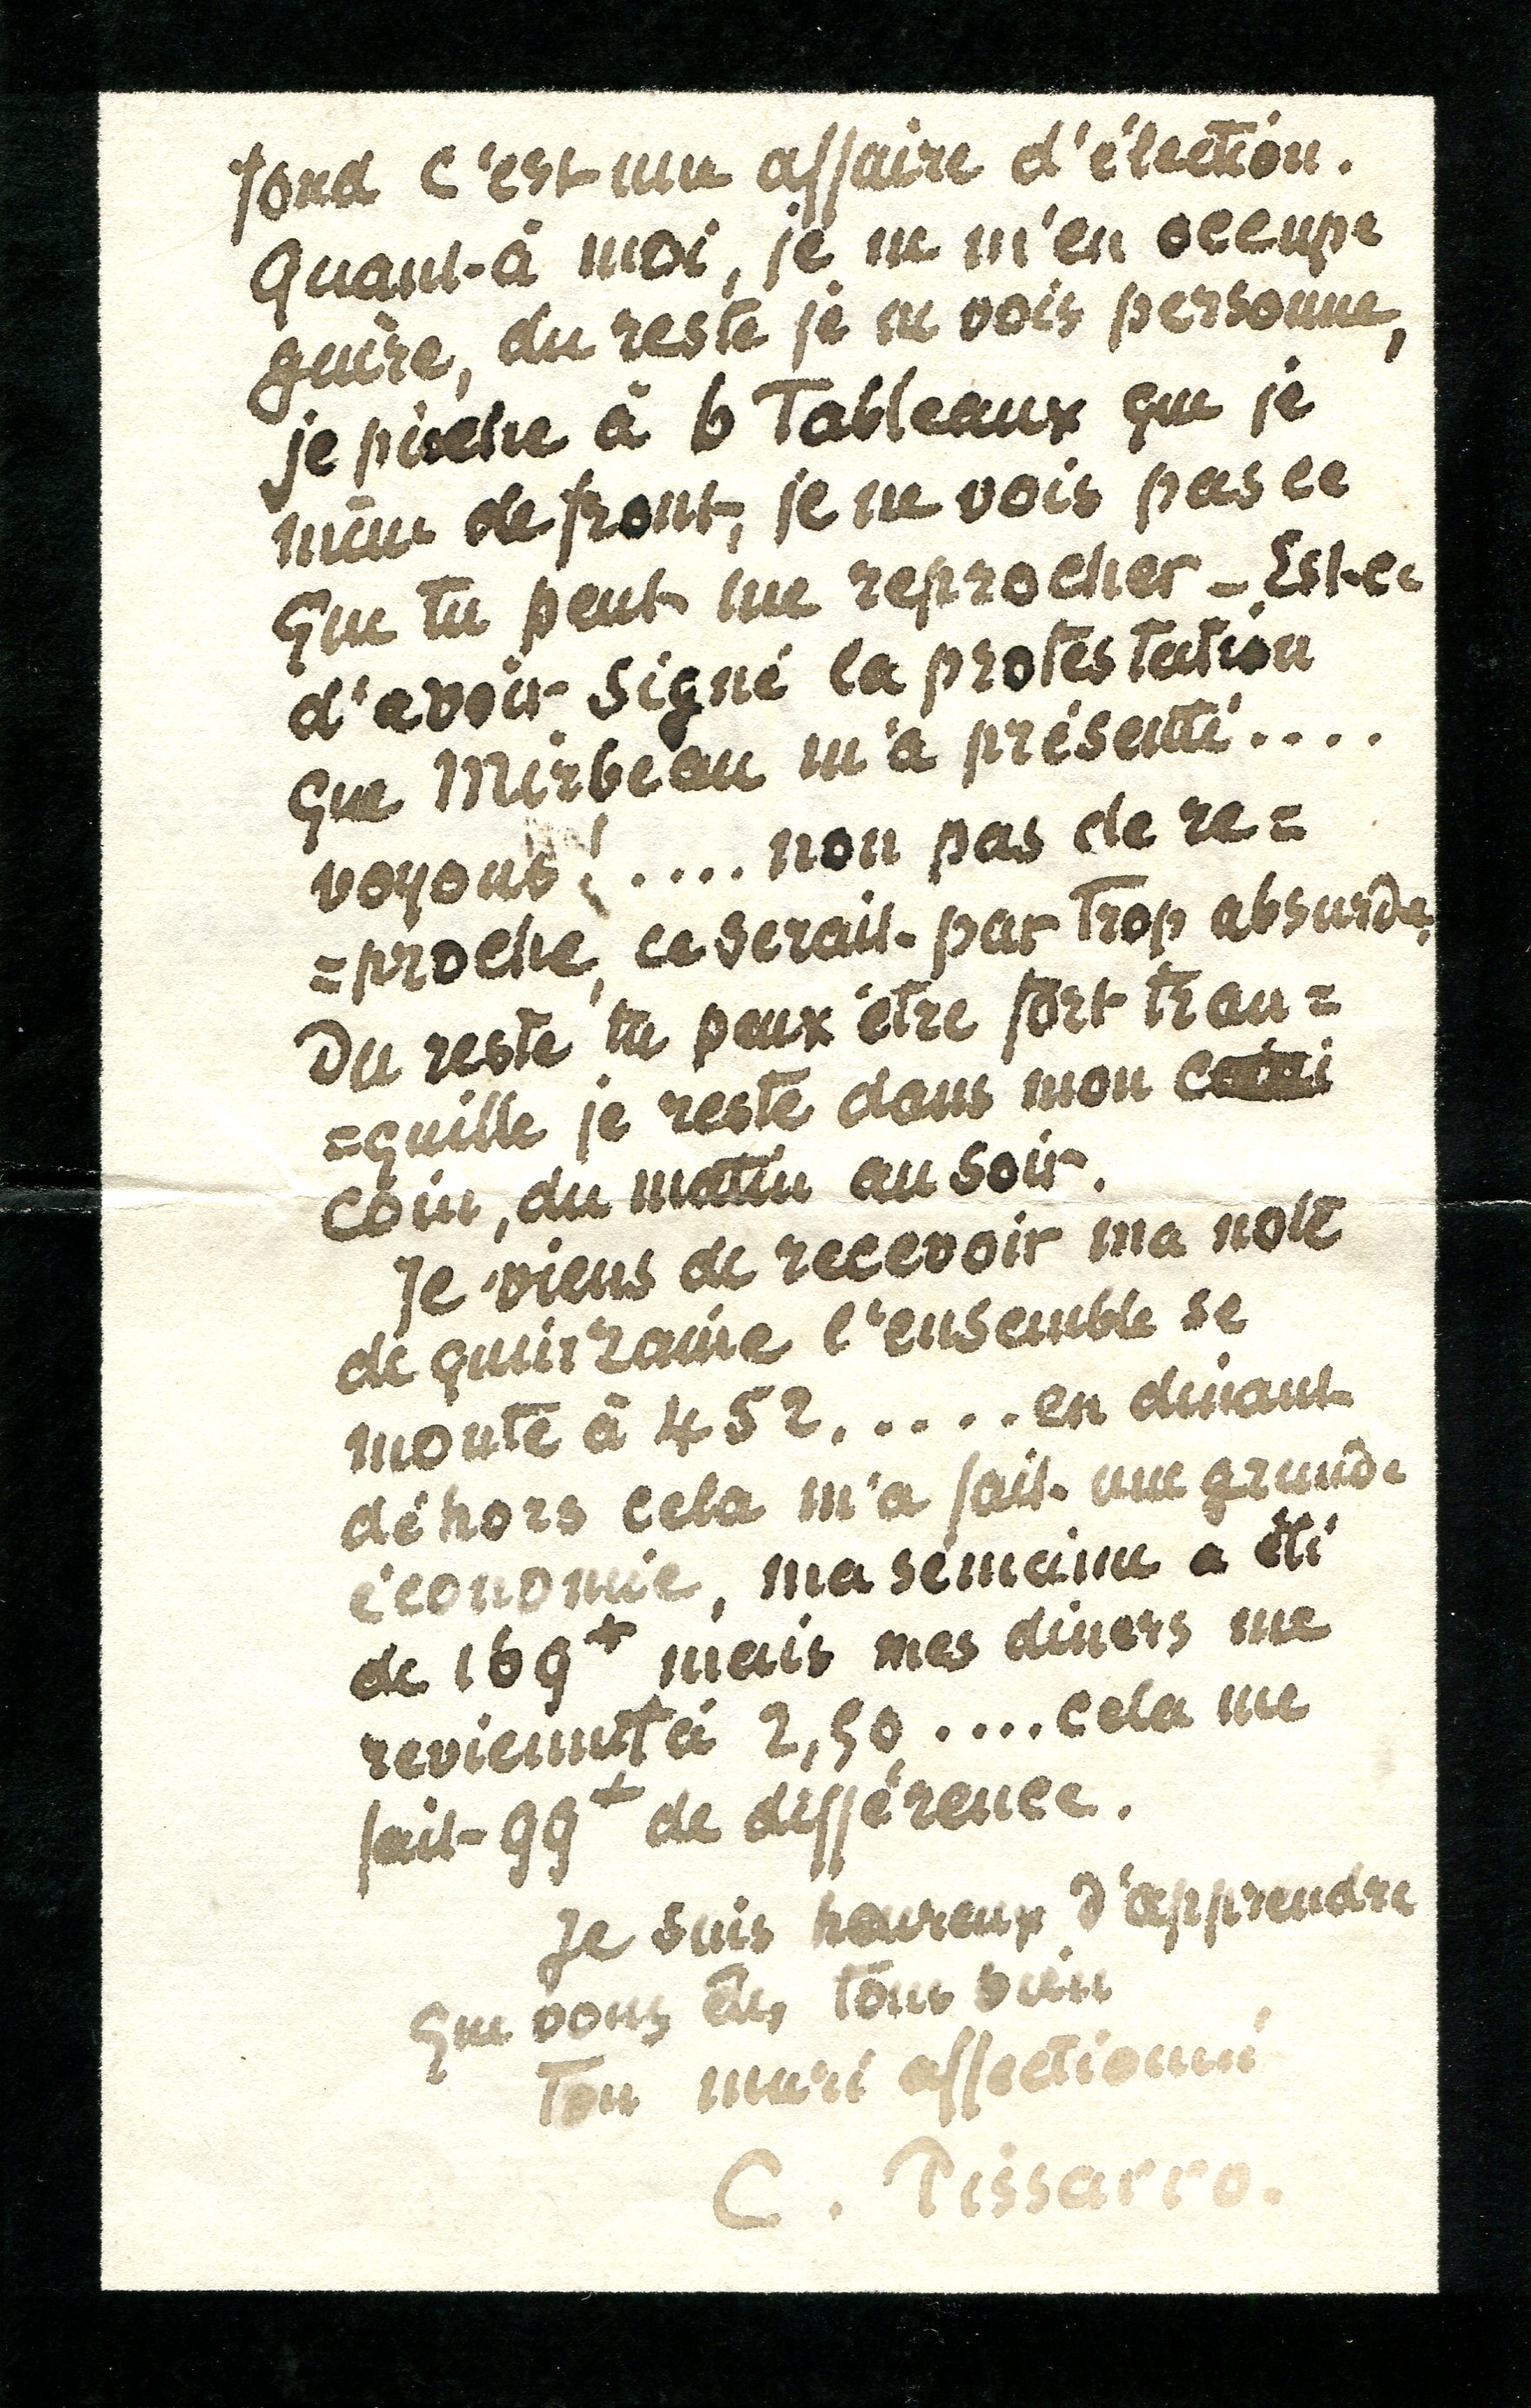 fond c'est une affaire d'élection.
Quant-à moi, je ne m'en occupe
guère, du reste je ne vois personne,
je pioche à 6 Tableaux que je
mène de front, je ne vois pas ce
que tu peut me reprocher – Est-ce
d'avoir signé la protestation
que Mirbeau m'a présenté....
voyons! .... non pas de re=
=proche, ce serait par trop absurde,
Du reste tu peux être fort tran=
=quille je reste dans mon
coin, du matin au soir.
Je viens de recevoir ma note
de quinzaine l'ensemble se
monte à 452. .... en dinant
déhors cela m'a fait une grande
économie, ma semaine a été
de 169+ mais mes diners me
reviennent à 2,50 .... cela me
fait 99+ de différence.
Je suis heureux d'apprendre
que vous êtes tous bien
Ton mari affectionné
C. Pissarro.